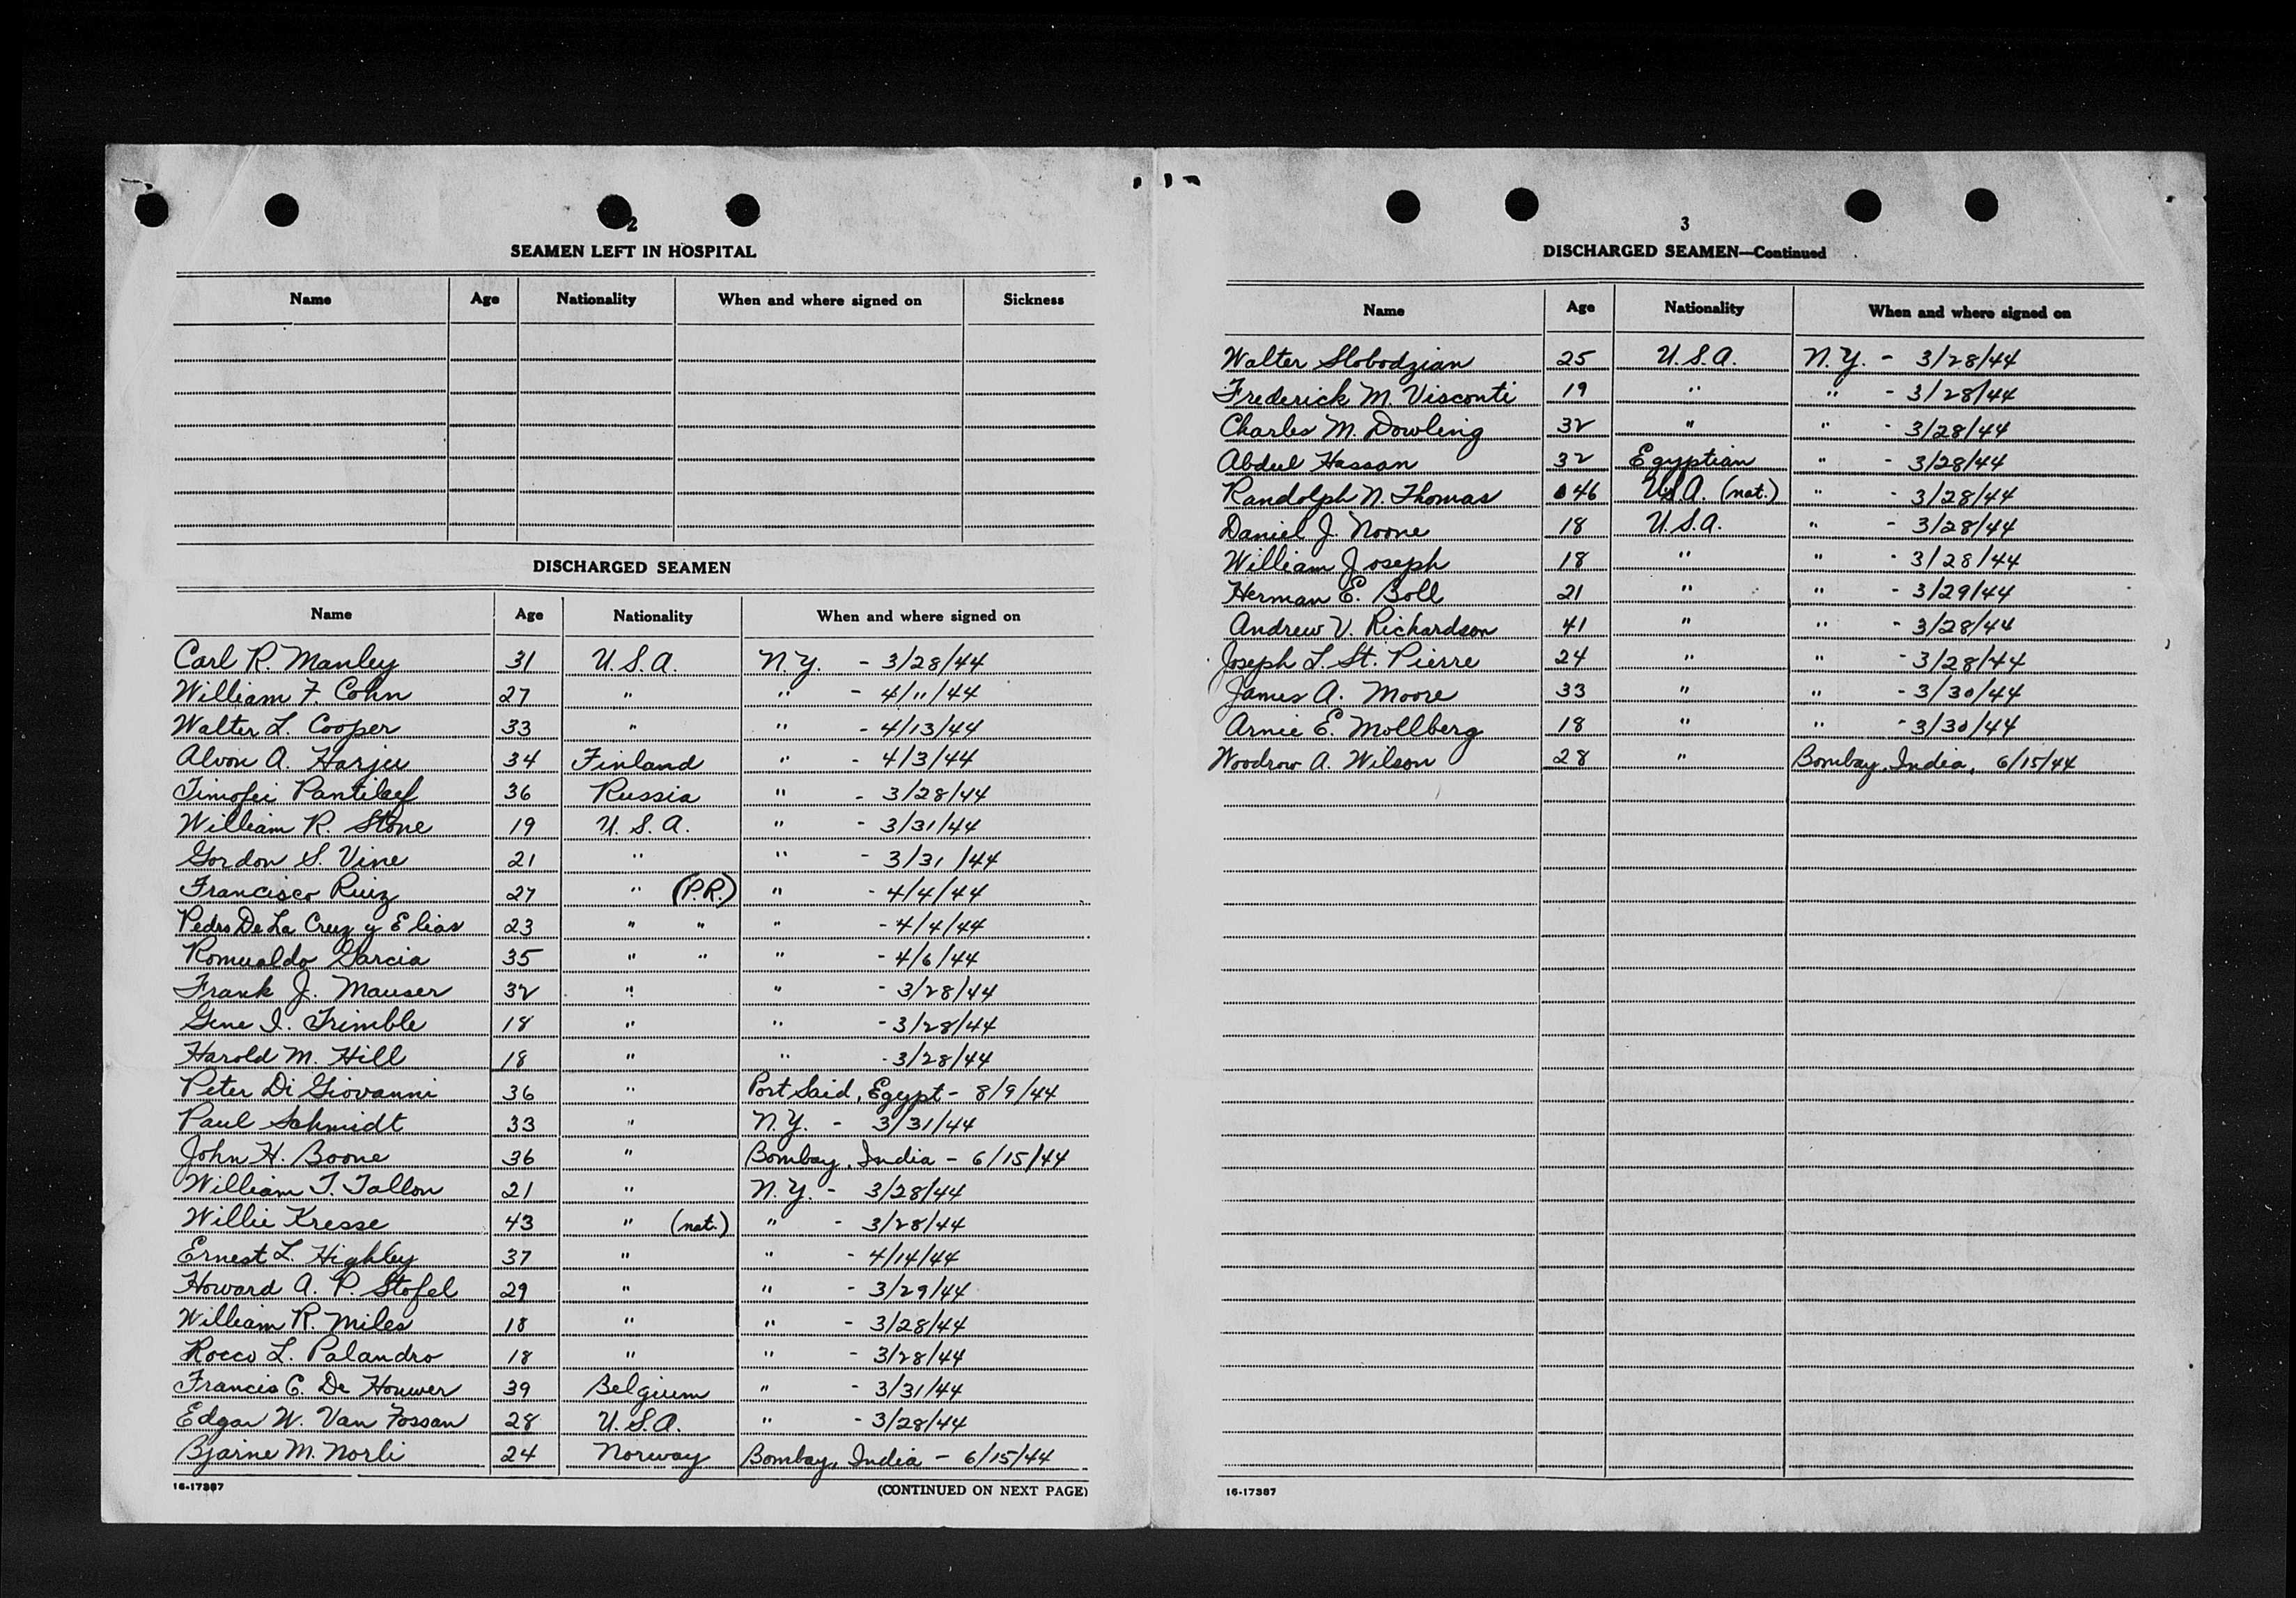 2
SEAMEN LEFT IN HOSPITAL
Name Age Nationality When and where signed on Sickness
DISCHARGED SEAMEN
Name Age Nationality When and where signed on
Carl R. Manley 31 U.S.A. N.Y. - 3/28/44
William F. Cohn 27 " " - 4/11/44
Walter L. Cooper 33 " " - 4/13/44
Alvon A. Harju 34 Finland " - 4/3/44
Timofei Pantilaef 36 Russia " - 3/28/44
William R. Stone 19 U.S.A. " - 3/31/44
Gordon S. Vine 21 " " - 3/31/44
Francisco Ruiz 27 " (P.R.) " - 4/4/44
Pedro De La Cruz y Elias 23 " " " - 4/4/44
Romualdo Garcia 35 " " " - 4/6/44
Frank J. Mauser 32 " " - 3/28/44
Gene I. Trimble 18 " " - 3/28/44
Harold M. Hill 18 " " - 3/28/44
Peter Di Giovanni 36 " Port Said, Egypt - 8/9/44
Paul Schmidt 33 " N.Y. - 3/31/44
John H. Boone 36 " Bombay, India - 6/15/44
William T. Tallon 21 " N.Y. - 3/28/44
Willie Kresse 43 " (nat.) " - 3/28/44
Ernest L. Highley 37 " " - 4/14/44
Howard A. P. Stofel 29 " " - 3/29/44
William R. Miles 18 " " - 3/28/44
Rocco L. Palandro 18 " " - 3/28/44
Francis C. De Houwer 39 Belgium " - 3/31/44
Edgar W. Van Fossan 28 U.S.A. " - 3/28/44
Bjarne M. Norli 24 Norway Bombay, India - 6/15/44
16-17387 (CONTINUED ON NEXT PAGE)
3
DISCHARGED SEAMEN—Continued
Name Age Nationality When and where signed on
Walter Slobodzian 25 U.S.A. N.Y. - 3/28/44
Frederick M. Visconti 19 " " - 3/28/44
Charles M. Dowling 32 " " - 3/28/44
Abdul Hassan 32 Egyptian " - 3/28/44
Randolph N. Thomas 46 U.S.A. (nat.) " - 3/28/44
Daniel J. Noone 18 U.S.A. " - 3/28/44
William Joseph 18 " " - 3/28/44
Herman E. Boll 21 " " - 3/29/44
Andrew V. Richardson 41 " " - 3/28/44
Joseph L. St. Pierre 24 " " - 3/28/44
James A. Moore 33 " " - 3/30/44
Arnie E. Mollberg 18 " " - 3/30/44
Woodrow A. Wilson 28 " Bombay, India, 6/15/44
16-17387